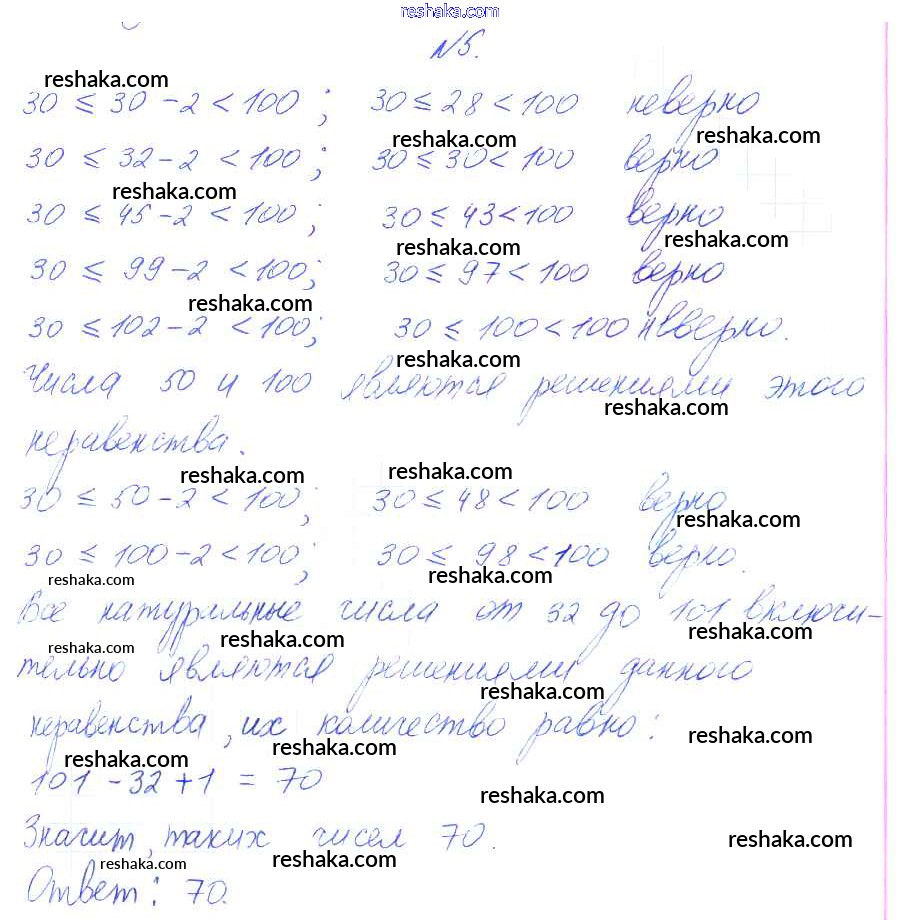 reshaka.com
№5.
reshaka.com
30 ≤ 30 - 2 < 100 ; 30 ≤ 28 < 100 неверно
reshaka.com reshaka.com
30 ≤ 32 - 2 < 100 ; 30 ≤ 30 < 100 верно
reshaka.com
30 ≤ 45 - 2 < 100 ; 30 ≤ 43 < 100 верно
reshaka.com reshaka.com
30 ≤ 99 - 2 < 100 ; 30 ≤ 97 < 100 верно
reshaka.com
30 ≤ 102 - 2 < 100 ; 30 ≤ 100 < 100 неверно.
reshaka.com
Числа 50 и 100 являются решениями этого
reshaka.com
неравенства.
reshaka.com reshaka.com
30 ≤ 50 - 2 < 100 ; 30 ≤ 48 < 100 верно
reshaka.com
30 ≤ 100 - 2 < 100 ; 30 ≤ 98 < 100 верно.
reshaka.com reshaka.com
Все натуральные числа от 32 до 101 включи-
reshaka.com reshaka.com reshaka.com
тельно являются решениями данного
reshaka.com
неравенства, их количество равно:
reshaka.com reshaka.com reshaka.com
101 - 32 + 1 = 70
reshaka.com
Значит, таких чисел 70.
reshaka.com reshaka.com reshaka.com
Ответ: 70.